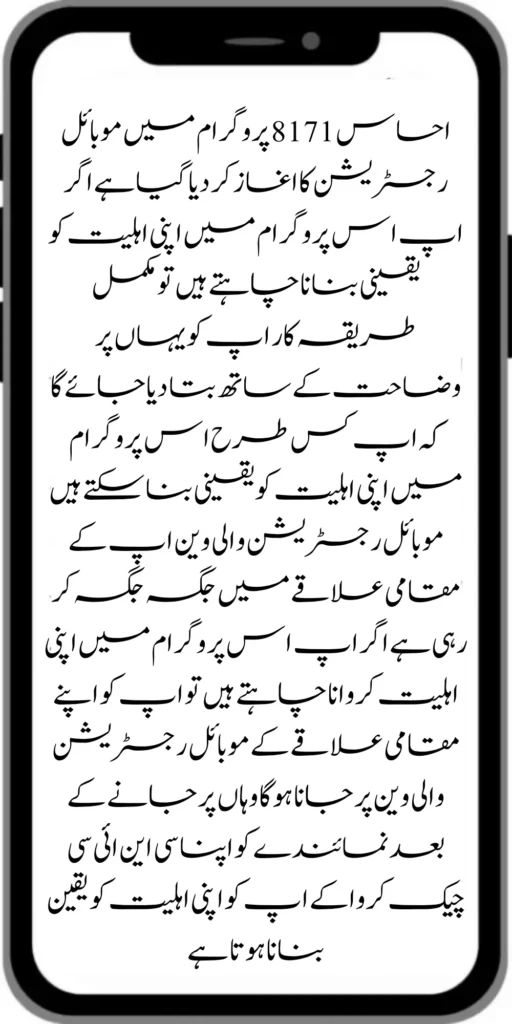 احساس 8171 پروگرام میں موبائل
رجسٹریشن کا اغاز کر دیا گیا ہے اگر
اپ اس پروگرام میں اپنی اہلیت کو
یقینی بنانا چاہتے ہیں تو مکمل
طریقہ کار اپ کو یہاں پر
وضاحت کے ساتھ بتا دیا جائے گا
کہ اپ کس طرح اس پروگرام
میں اپنی اہلیت کو یقینی بنا سکتے ہیں
موبائل رجسٹریشن والی وین اپ کے
مقامی علاقے میں جگہ جگہ کر
رہی ہے اگر اپ اس پروگرام میں اپنی
اہلیت کروانا چاہتے ہیں تو اپ کو اپنے
مقامی علاقے کے موبائل رجسٹریشن
والی وین پر جانا ہوگا وہاں پر جانے کے
بعد نمائندے کو اپنا سی این ائی سی
چیک کروا کے اپ کو اپنی اہلیت کو یقین
بنانا ہوتا ہے